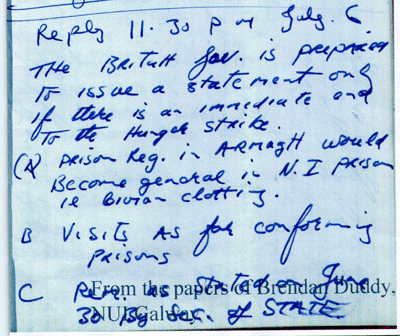 Reply 11.30 p m July. 6
THE British Gov. is preparing
To issue a statement only
if there is an immediate end
To the Hunger strike.
(A) Prison Reg. in ARMAGH would
Become general in N.I prison
ie civilian clothing.
B Visits as for conforming
prisons
C as stated on June
30 By Sec. of STATE.
From the papers of Brendan Duddy,
NUI Galway